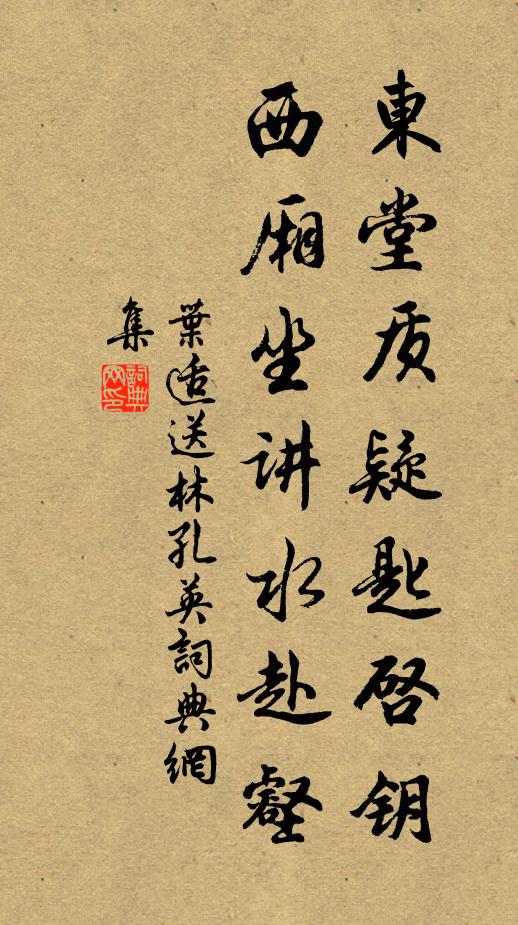 東堂质疑匙启钥
西厢坐讲水赴壑
葉适送林孔英詞典網
集
詞典网印